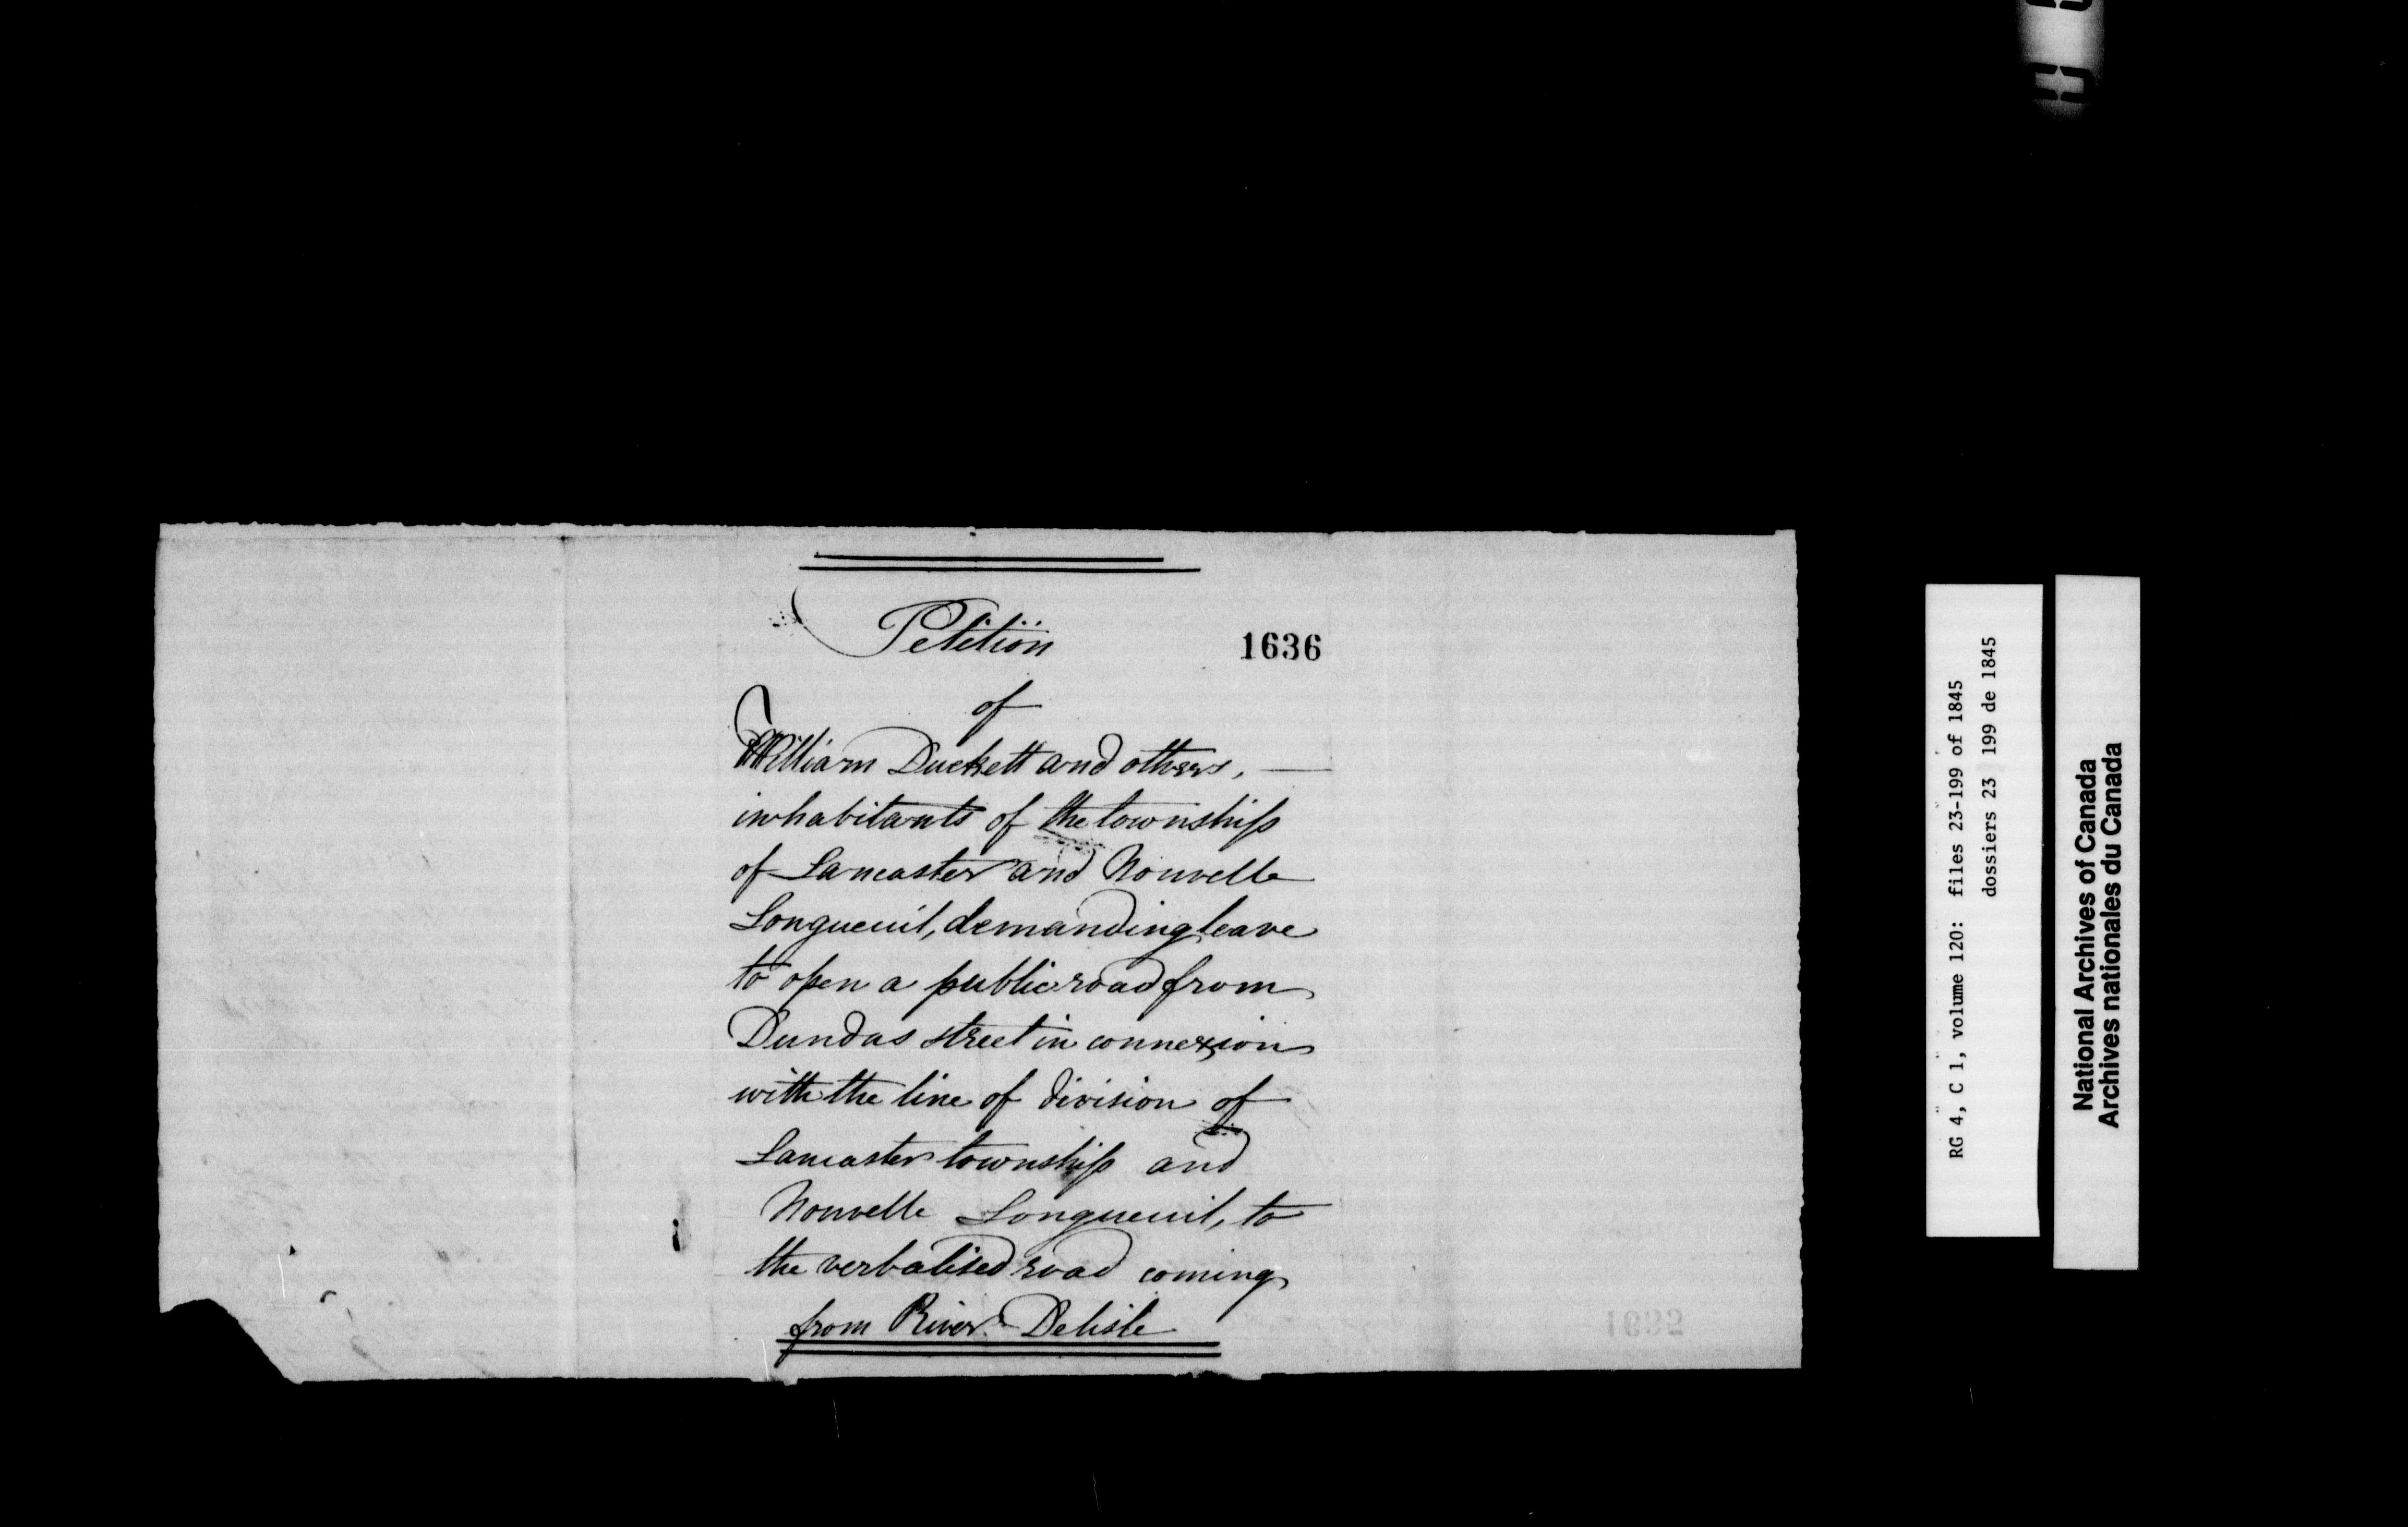 Petition
1636
of
William Duckett and others, —
inhabitants of the township
of Lancaster and Nouvelle
Longueuil, demanding leave
to open a public road from
Dundas street in connexion
with the line of division of
Lancaster township and
Nouvelle Longueuil, to
the verbalised road coming
from River Delisle
RG 4, C 1, volume 120: files 23-199 of 1845
dossiers 23 199 de 1845
National Archives of Canada
Archives nationales du Canada